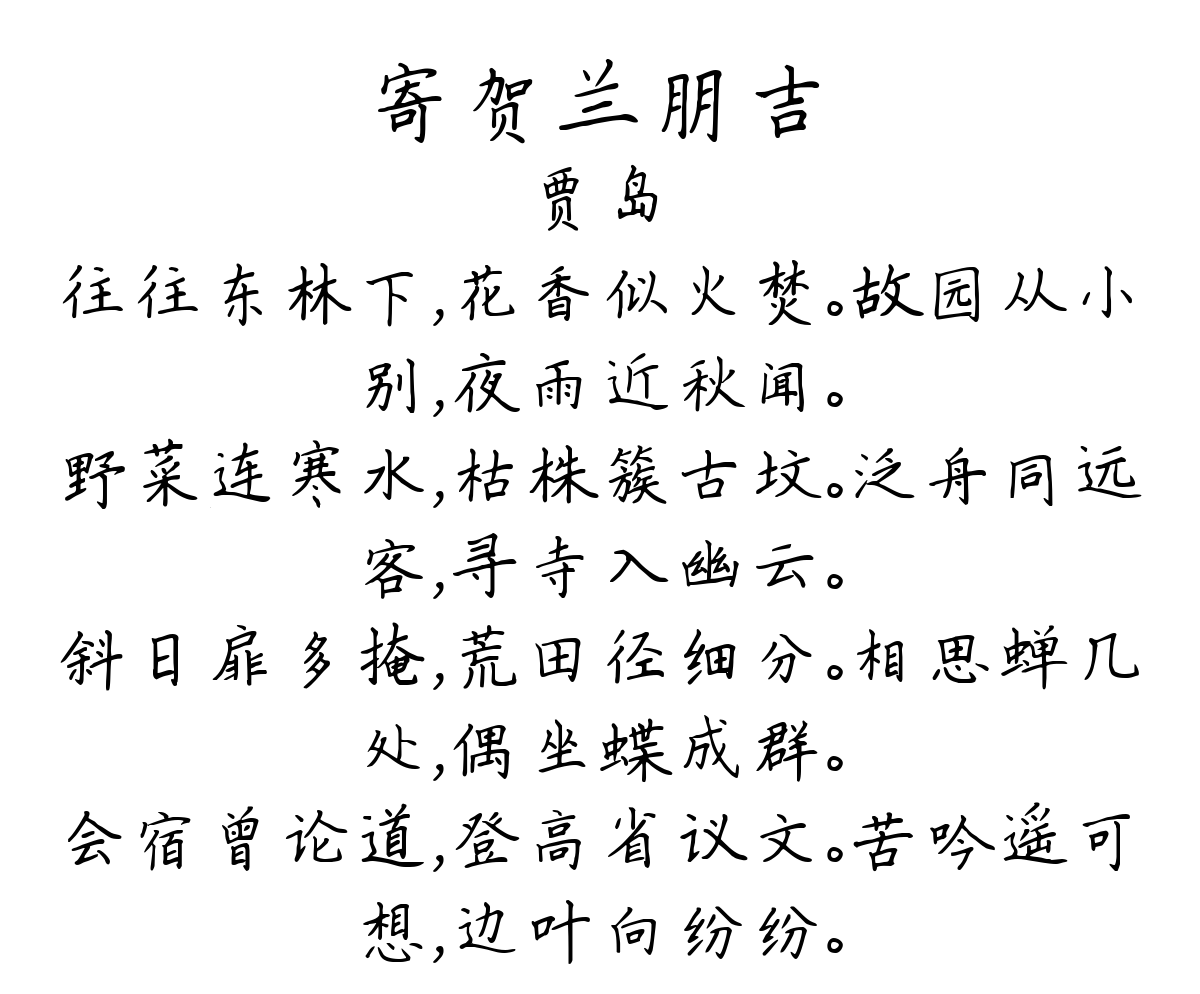 寄贺兰朋吉
贾岛
往往东林下,花香似火焚。故园从小
别,夜雨近秋闻。
野菜连寒水,枯株簇古坟。泛舟同远
客,寻寺入幽云。
斜日扉多掩,荒田径细分。相思蝉几
处,偶坐蝶成群。
会宿曾论道,登高省议文。苦吟遥可
想,边叶向纷纷。